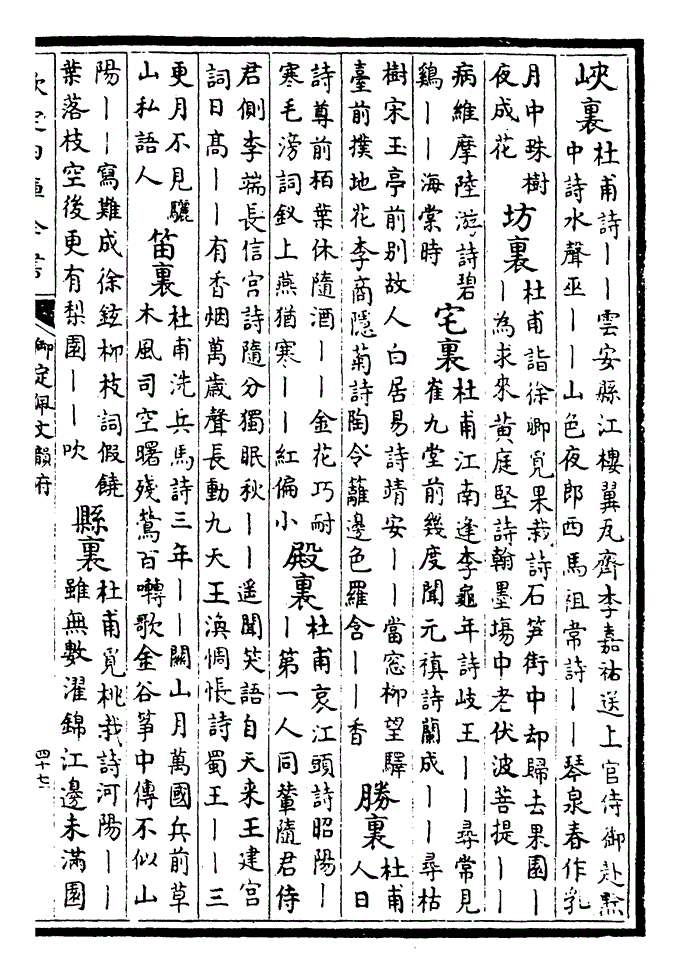 峽裏
杜甫詩——雲安縣江樓翼瓦齊李嘉祐送上官侍御赴黔
中詩水聲巫——山色夜郎西馬祖常詩——琴泉春作乳
月中珠樹
夜成花
坊裏
杜甫詣徐卿覓果栽詩石筍街中却歸去果園—
—為求來黄庭堅詩翰墨塲中老伏波菩提——
病維摩陸游詩碧
鷄——海棠時
宅裏
杜甫江南逢李龜年詩岐王——尋常見
崔九堂前幾度聞元稹詩蘭成——尋枯
樹宋玉亭前别故人白居易詩靖安——當窓柳望驛
臺前撲地花李商隱菊詩陶令籬邊色羅含——香
勝裏
杜甫
人日
詩尊前栢葉休隨酒——金花巧耐
寒毛滂詞釵上燕猶寒——紅偏小
殿裏
杜甫哀江頭詩昭陽—
—第一人同輦隨君侍
君側李端長信宫詩隨分獨眠秋——遥聞笑語自天来王建宫
詞日髙——有香烟萬歲聲長動九天王渙惆悵詩蜀王——三
更月不見驪
山私語人
笛裏
杜甫洗兵馬詩三年——關山月萬國兵前草
木風司空曙殘鶯百囀歌金谷筝中傳不似山
陽——寫難成徐鉉柳枝詞假饒
葉落枝空後更有梨園——吹
縣裏
杜甫覓桃栽詩河陽——
雖無數濯錦江邊未滿園
欽定四庫全書
御定佩文韻府
四十七